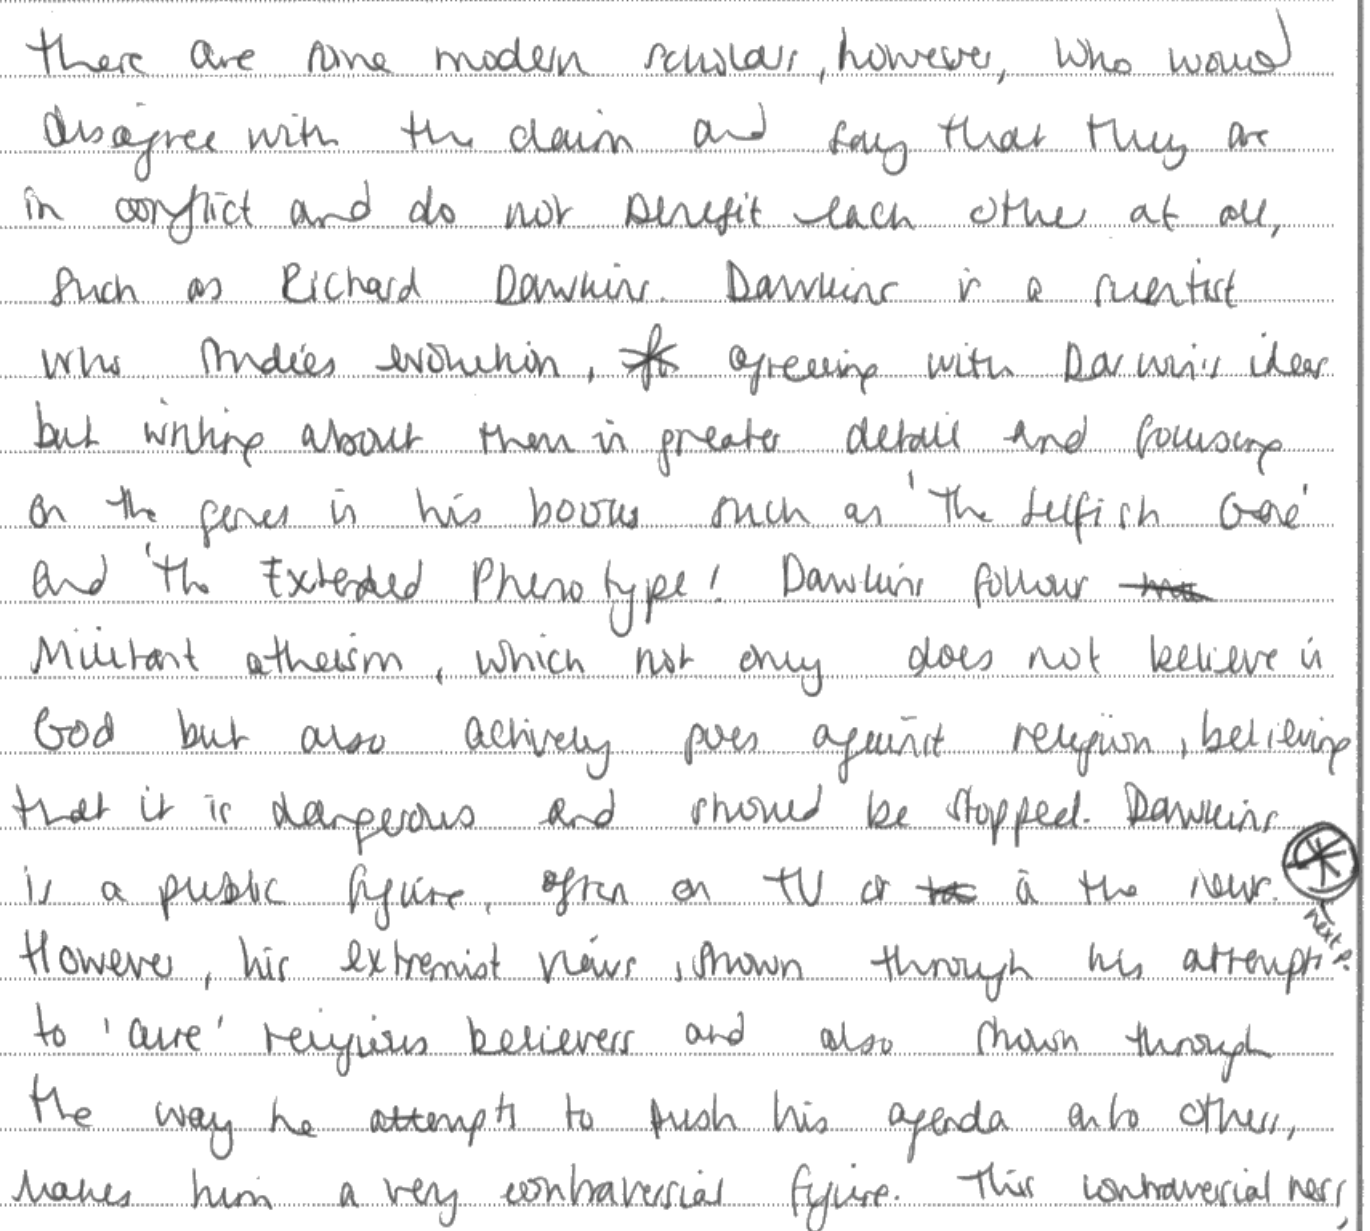 there are some modern scholars, however, who would
disagree with the claim and say that they are
in conflict and do not benefit each other at all,
such as Richard Dawkins. Dawkins is a scientist
who studies evolution, agreeing with Darwin's ideas
but writing about them in greater detail and focusing
on the genes in his books such as 'The Selfish Gene'
and 'The Extended Phenotype'. Dawkins follows
Militant atheism, which not only does not believe in
God but also actively goes against religion, believing
that it is dangerous and should be stopped. Dawkins
is a public figure, often on TV or in the news. *
next p.
However, his extremist views, shown through his attempts
to 'cure' religious believers and also shown through
the way he attempts to push his agenda onto others,
makes him a very contraversial figure. This contraversialness,